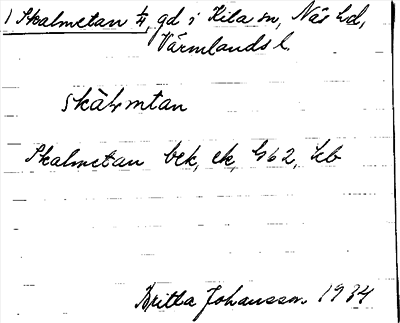 1 Skalmetan 1/4, gd i Kila sn, Näs hd,
Värmlands l.
skàlmtan
Skalmetan bek, ek, G62, kb
Britta Johansson 1934